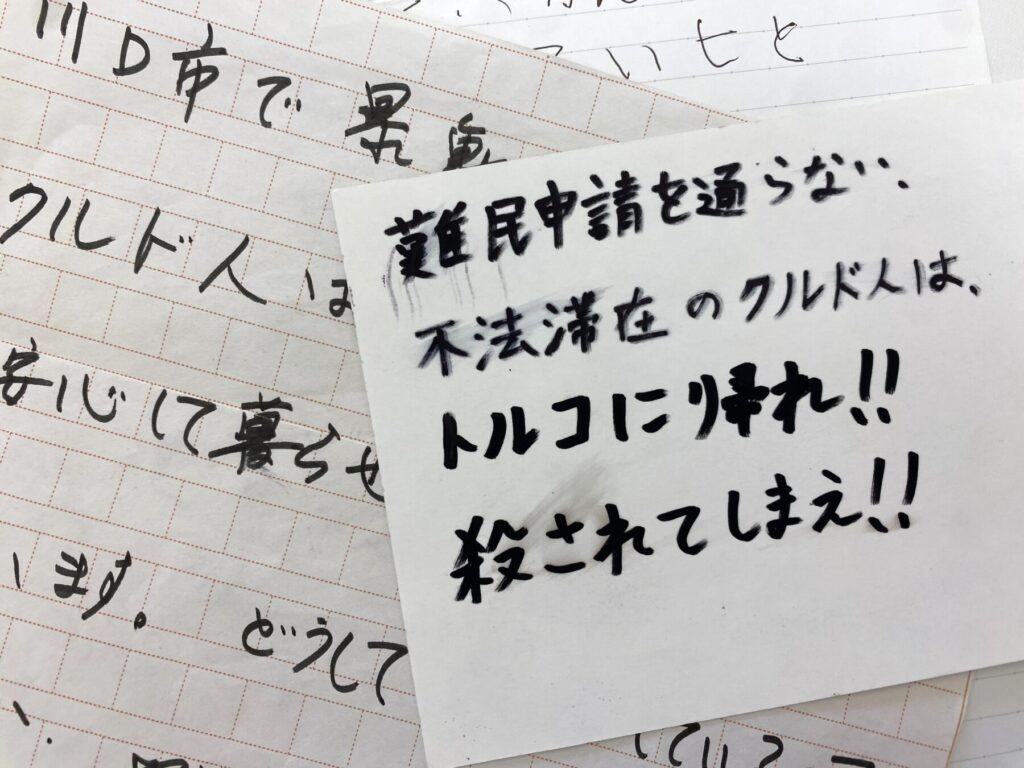 い七と
川口市で
クルド人は
安心して暮らせ
います。 どうして
難民申請を通らない、
不法滞在のクルド人は、
トルコに帰れ!!
殺されてしまえ!!